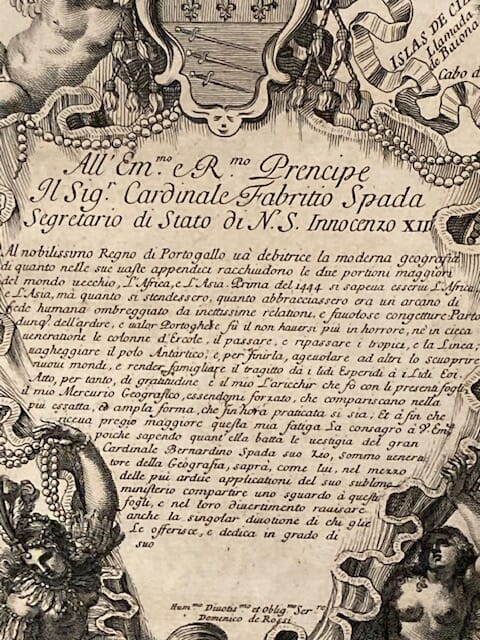 ISLAS DE
Llamada
Cabo d
All' Em.mo e R.mo Prencipe
Il Sig.r Cardinale Fabritio Spada
Segretario di Stato di N. S. Innocenzo XII
Al nobilissimo Regno di Portogallo uà debitrice la moderna geografia
di quanto nelle sue uaste appendici racchiudono le due portioni maggiori
del mondo uecchio, L'Africa, e L'Asia. Prima del 1444 si sapeua esserui L'Africa
L'Asia, mà quanto si stendessero, quanto abbracciassero era un arcano di
fede humana ombreggiato da inettissime relationi, e fauolose congetture Parto
dunq. dell'ardire, e ualor Portoghese fù il non hauersi più in horrore, nè in cieca
ueneratione le colonne d'Ercole, il passare, e ripassare i tropici, e la Linea,
uagheggiare il polo Antartico, e, per finirla, ageuolare ad altri lo scuoprire
nuoui mondi, e render famigliare il tragitto dà i lidi Esperidi à i Lidi Eoi.
Atto, per tanto, di gratitudine è il mio L'aricchir che fò con li presenti fogli
il mio Mercurio Geografico, essendomi forzato, che compariscano nella
più essatta, & ampla forma, che fin'hora praticata si sia. Et à fin che
riceua pregio maggiore questa mia fatiga La consagro à V. Em.
poiche sapendo quant'ella batta le uestigia del gran
Cardinale Bernardino Spada suo Zio, sommo ueneri
tore della Geografia, saprà, come lui, nel mezzo
delle più ardue applicationi del suo sublime
ministerio compartire uno sguardo à questi
fogli, e nel loro diuertimento rauisare
anche la singolar diuotione di chi glie
Le offerisce, e dedica in grado di
suo
Hum.mo Diuotis.mo et Oblig.mo Ser.re
Domenico de Rossi